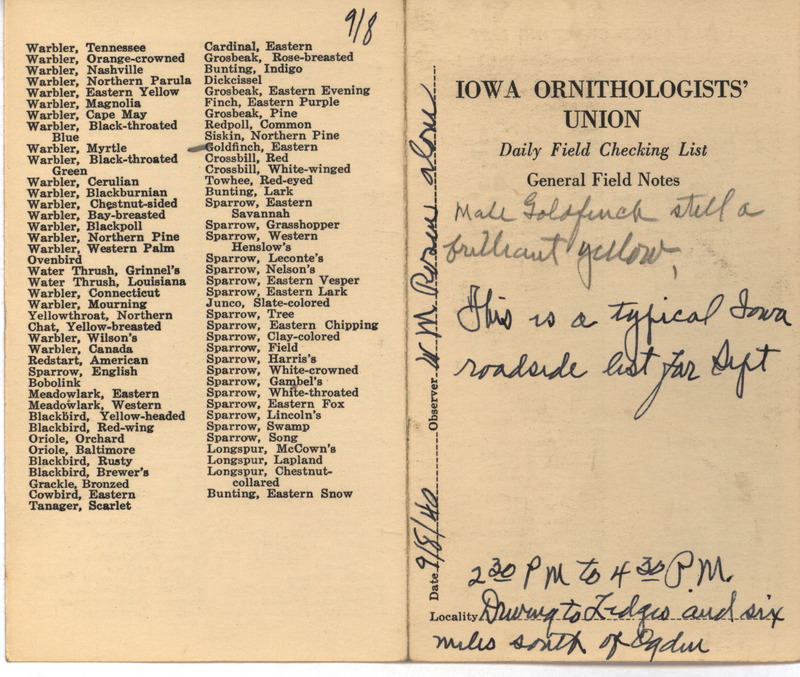 9/8
Warbler, Tennessee
Warbler, Orange-crowned
Warbler, Nashville
Warbler, Northern Parula
Warbler, Eastern Yellow
Warbler, Magnolia
Warbler, Cape May
Warbler, Black-throated
Blue
Warbler, Myrtle
Warbler, Black-throated
Green
Warbler, Cerulian
Warbler, Blackburnian
Warbler, Chestnut-sided
Warbler, Bay-breasted
Warbler, Blackpoll
Warbler, Northern Pine
Warbler, Western Palm
Ovenbird
Water Thrush, Grinnel's
Water Thrush, Louisiana
Warbler, Connecticut
Warbler, Mourning
Yellowthroat, Northern
Chat, Yellow-breasted
Warbler, Wilson's
Warbler, Canada
Redstart, American
Sparrow, English
Bobolink
Meadowlark, Eastern
Meadowlark, Western
Blackbird, Yellow-headed
Blackbird, Red-wing
Oriole, Orchard
Oriole, Baltimore
Blackbird, Rusty
Blackbird, Brewer's
Grackle, Bronzed
Cowbird, Eastern
Tanager, Scarlet
Cardinal, Eastern
Grosbeak, Rose-breasted
Bunting, Indigo
Dickcissel
Grosbeak, Eastern Evening
Finch, Eastern Purple
Grosbeak, Pine
Redpoll, Common
Siskin, Northern Pine
Goldfinch, Eastern
Crossbill, Red
Crossbill, White-winged
Towhee, Red-eyed
Bunting, Lark
Sparrow, Eastern
Savannah
Sparrow, Grasshopper
Sparrow, Western
Henslow's
Sparrow, Leconte's
Sparrow, Nelson's
Sparrow, Eastern Vesper
Sparrow, Eastern Lark
Junco, Slate-colored
Sparrow, Tree
Sparrow, Eastern Chipping
Sparrow, Clay-colored
Sparrow, Field
Sparrow, Harris's
Sparrow, White-crowned
Sparrow, Gambel's
Sparrow, White-throated
Sparrow, Eastern Fox
Sparrow, Lincoln's
Sparrow, Swamp
Sparrow, Song
Longspur, McCown's
Longspur, Lapland
Longspur, Chestnut-
collared
Bunting, Eastern Snow
Date 9/8/40 Observer W M Rosen alone
IOWA ORNITHOLOGISTS'
UNION
Daily Field Checking List
General Field Notes
Male Goldfinch still a
brilliant yellow,
This is a typical Iowa
roadside list for Sept
2 30 PM to 4 30 P.M.
Locality Driving to Ledges and six
miles south of Ogden